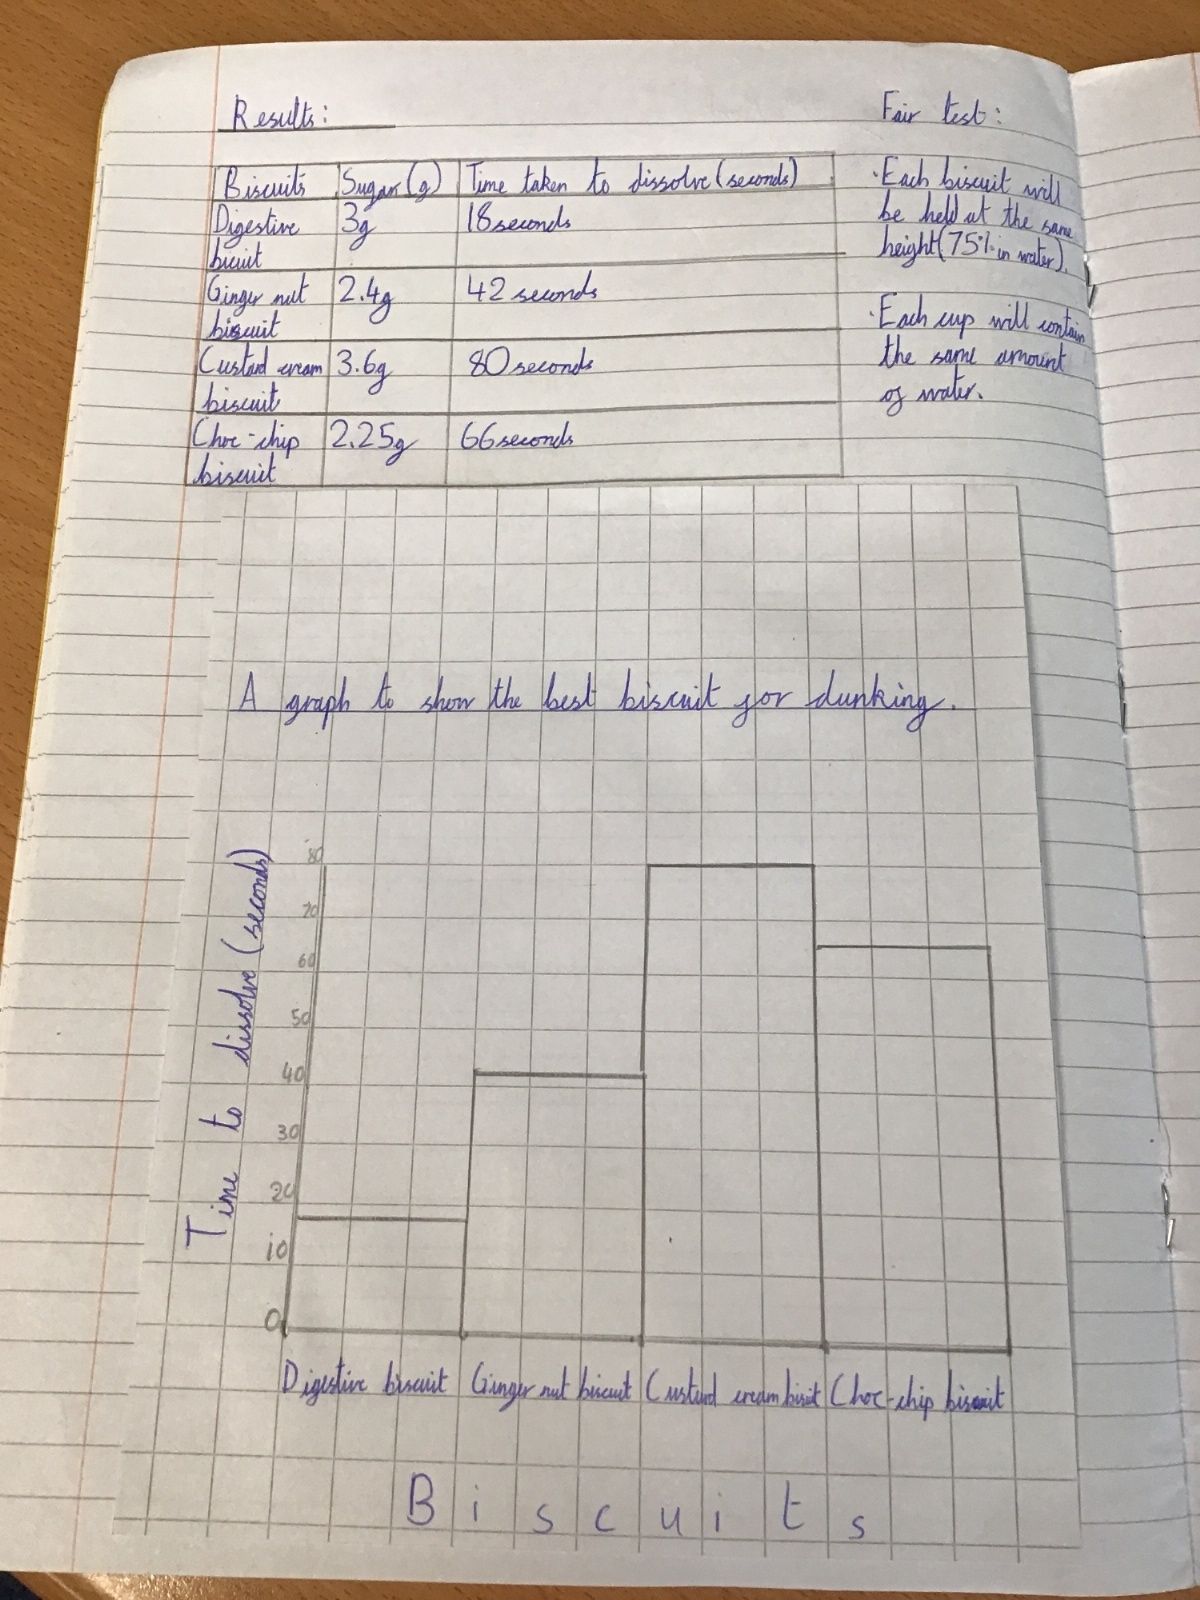 Results:
Biscuits Sugar(g) Time taken to dissolve(seconds)
Digestive 3g 18seconds
bicuit
Ginger nut 2.4g 42 seconds
biscuit
Custard cream 3.6g 80seconds
biscuit
Choc-chip 2.25g 66seconds
biscuit
Fair test:
·Each biscuit will
be held at the same
height(75% in water).
·Each cup will contain
the same amount
of water.
A graph to show the best biscuit for dunking.
Time to dissolve (seconds)
80
70
60
50
40
30
20
10
0
Digestive biscuit Ginger nut biscuit Custard cream bisuit Choc-chip biscuit
Biscuits